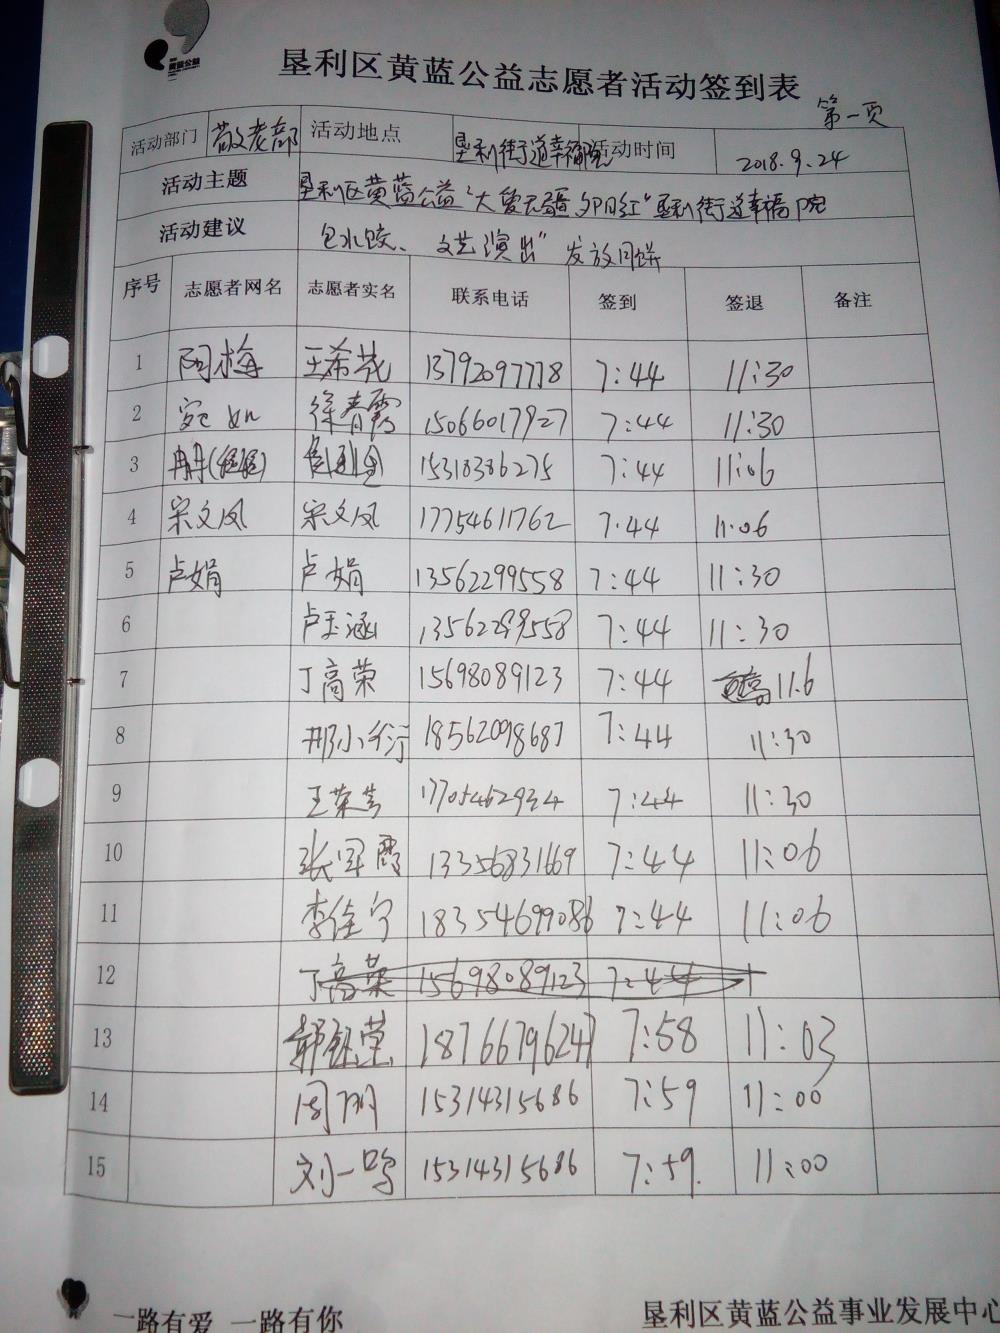 黄蓝公益
垦利区黄蓝公益志愿者活动签到表
第一页
活动部门 敬老部 活动地点 垦利街道幸福院 活动时间 2018.9.24
活动主题 垦利区黄蓝公益"大爱无疆 夕阳红"垦利街道幸福院
活动建议 包水饺、文艺演出"发放月饼
序号 志愿者网名 志愿者实名 联系电话 签到 签退 备注
1 阿梅 王希花 13792097778 7:44 11:30
2 宛如 徐青霞 15066017927 7:44 11:30
3 15318386275 7:44 11:06
4 宋文凤 宋文凤 17754611762 7:44 11:06
5 卢娟 卢娟 13562299558 7:44 11:30
6 卢玉涵 13562299558 7:44 11:30
7 丁高荣 15698089123 7:44 11.6
8 邢小衍 18562098687 7:44 11:30
9 王荣芳 17705462934 7:44 11:30
10 张军霞 13356831669 7:44 11:06
11 李佳宁 18354699086 7:44 11:06
12 丁高荣 15698089123 7:44
13 18766796247 7:58 11:03
14 周明 15314315686 7:59 11:00
15 刘一鸣 15314315686 7:59. 11:00
一路有爱 一路有你 垦利区黄蓝公益事业发展中心